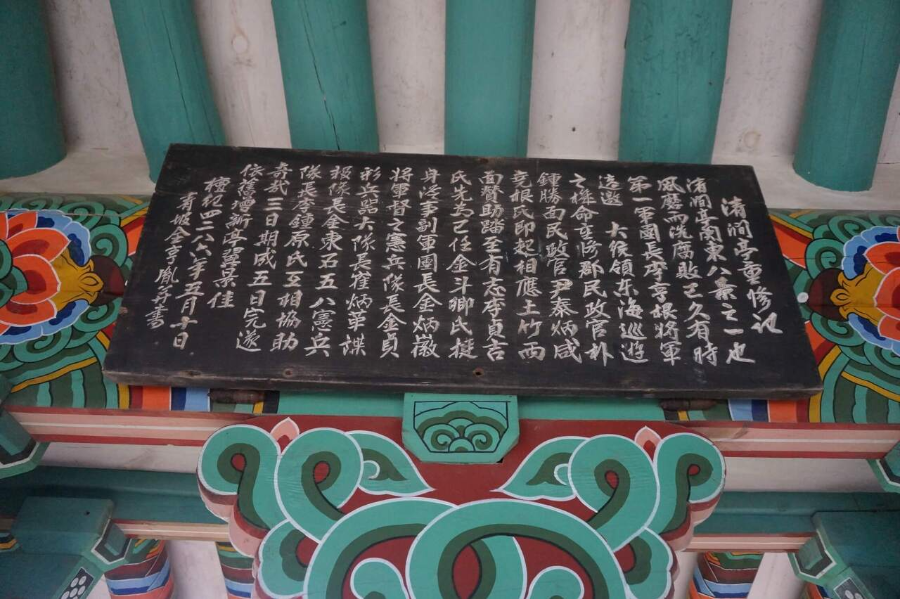 清澗亭重修記
清澗亭關東八景之一也
風磨雨洗腐敗已久有時
第一軍團長李亨根將軍
遠邀 大統領東海巡遊
之條命重修郡民政官朴
鍾勝面民政官尹泰炳咸
竟根氏印起相應土竹而
面贊助踏至有志李貞言
氏先為已任金斗卿氏挺
身從事副軍團長金炳徽
將軍督之憲兵隊長金貞
彩兵器大隊長崔炳華諜
報隊長金東石五八憲兵
隊長李鍾原氏互相協助
奇哉三日期成五日完遂
依舊增新淳翼景佳
檀紀四二八六年五月十日
青坡金亨胤并書